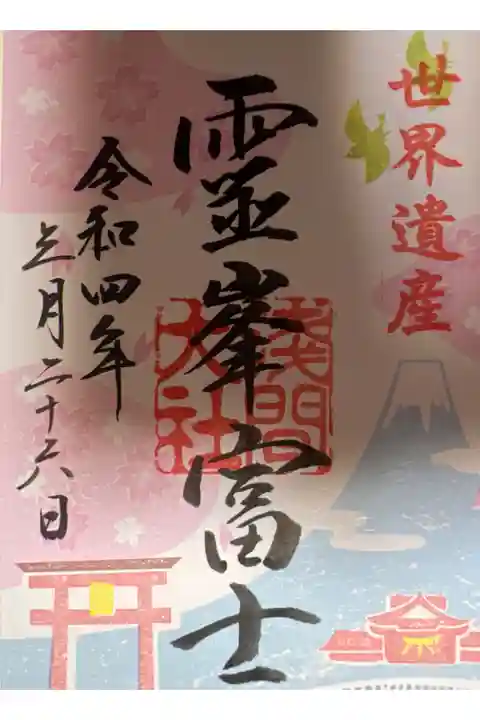 世界遺産
霊峯富士
浅間
大社
令和四年
三月二十六日